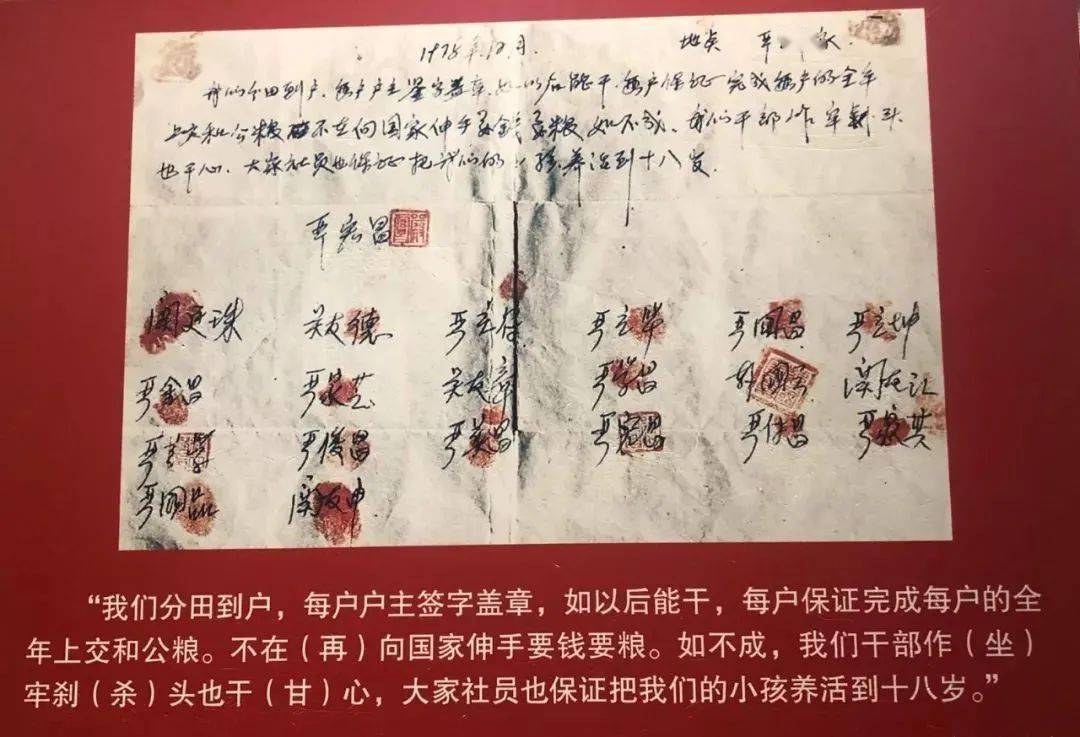 1978年12月. 地点 严
我们分田到户,每户户主签字盖章,如以后能干,每户保证完成每户的全年
上交和公粮 不在向国家伸手要钱要粮 如不成,我们干部作牢刹头
也干心,大家社员也保证把我们的小孩养活到十八岁.
严宏昌
关廷珠 关友德 严立符 严立华 严国昌 严立坤
严金昌 严家芝 关友章 严学昌 韩国云 关友江
严立学 严俊昌 严美昌 严宏昌 严付昌 严家其
严国品 关友申
“我们分田到户，每户户主签字盖章，如以后能干，每户保证完成每户的全
年上交和公粮。不在（再）向国家伸手要钱要粮。如不成，我们干部作（坐）
牢刹（杀）头也干（甘）心，大家社员也保证把我们的小孩养活到十八岁。”